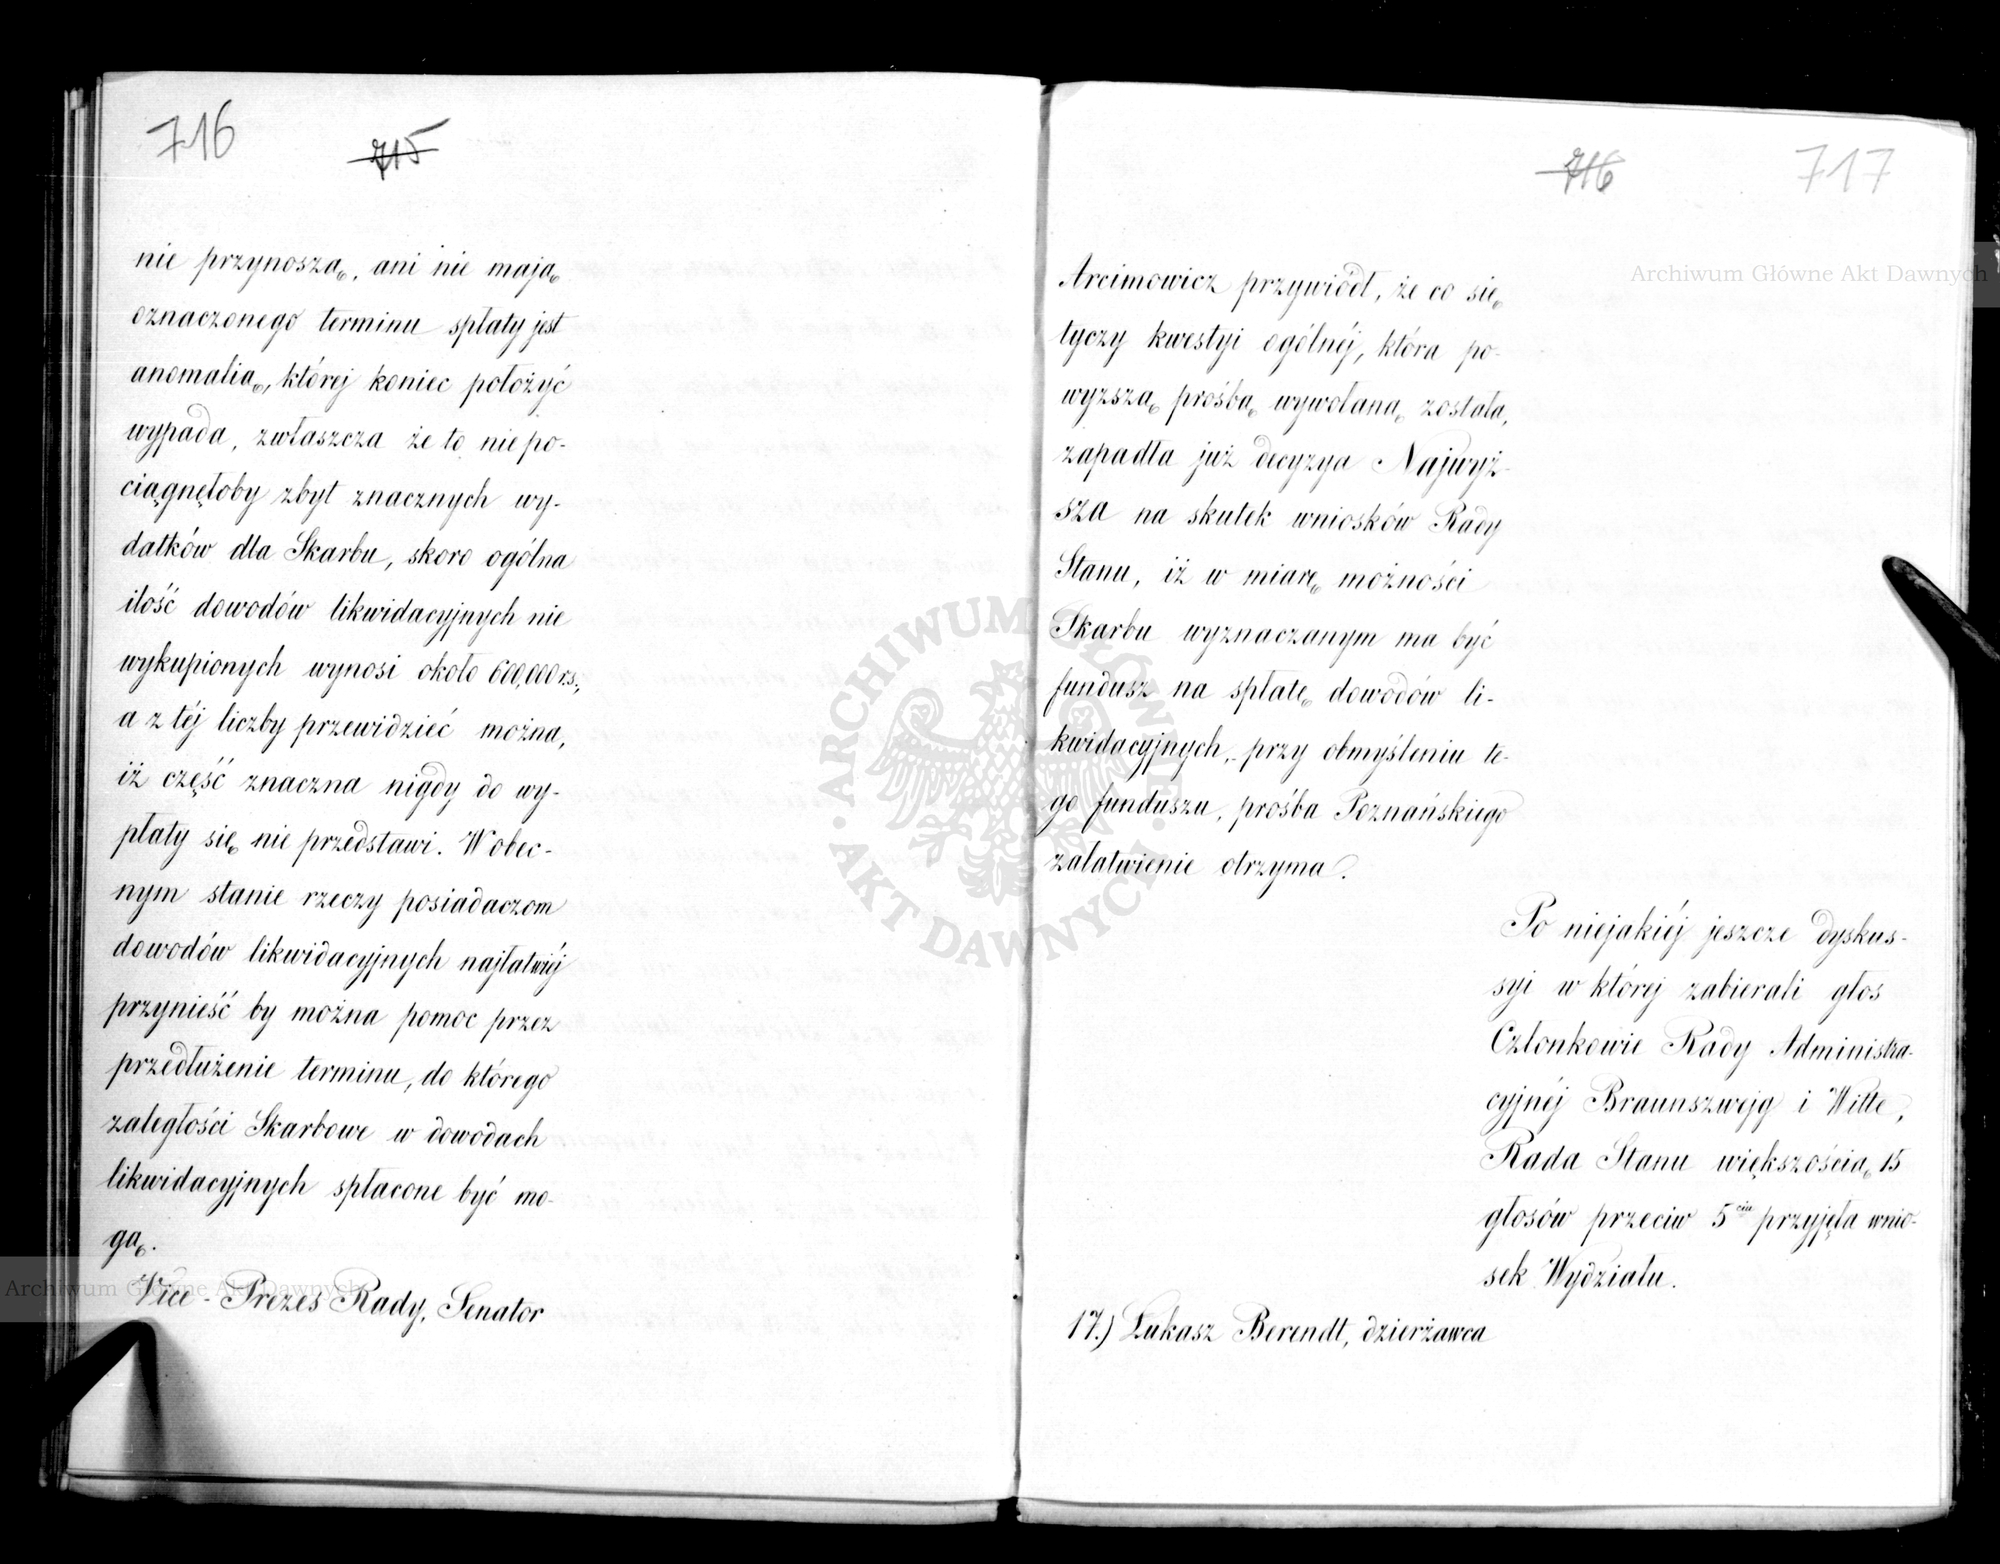 716
715
nie przynoszą, ani nie mają
oznaczonego terminu spłaty jest
anomalią, której koniec położyć
wypada, zwłaszcza że to nie po-
ciągnęłoby zbyt znacznych wy-
datków dla Skarbu, skoro ogólna
ilość dowodów likwidacyjnych nie
wykupionych wynosi około 600,000 rs.,
a z téj liczby przewidzieć można,
iż część znaczna nigdy do wy-
płaty się nie przedstawi. W obec-
nym stanie rzeczy posiadaczom
dowodów likwidacyjnych najłatwiéj
przynieść by można pomoc przez
przedłużenie terminu, do którego
zaległości Skarbowe w dowodach
likwidacyjnych spłacone być mo-
gą.
Vice-Prezes Rady, Senator
716
717
Arcimowicz przywiódł, że co się
tyczy kwestyi ogólnéj, która po-
wyższą prośbą wywołaną została,
zapadła już decyzya Najwyż-
sza na skutek wniosków Rady
Stanu, iż w miarę możności
Skarbu wyznaczanym ma być
fundusz na spłatę dowodów li-
kwidacyjnych, przy obmyśleniu te-
go funduszu, prośba Poznańskiego
załatwienie otrzyma.
Po niejakiéj jeszcze dyskus-
syi w której zabierali głos
Członkowie Rady Administra-
cyjnéj Braunszwejg i Witte,
Rada Stanu większością 15
głosów przeciw 5ciu przyjęła wnio-
sek Wydziału.
17.) Łukasz Berendt, dzierżawca
Archiwum Główne Akt Dawnych
Archiwum Główne Akt Dawnych
ARCHIWUM GŁÓWNE
AKT DAWNYCH